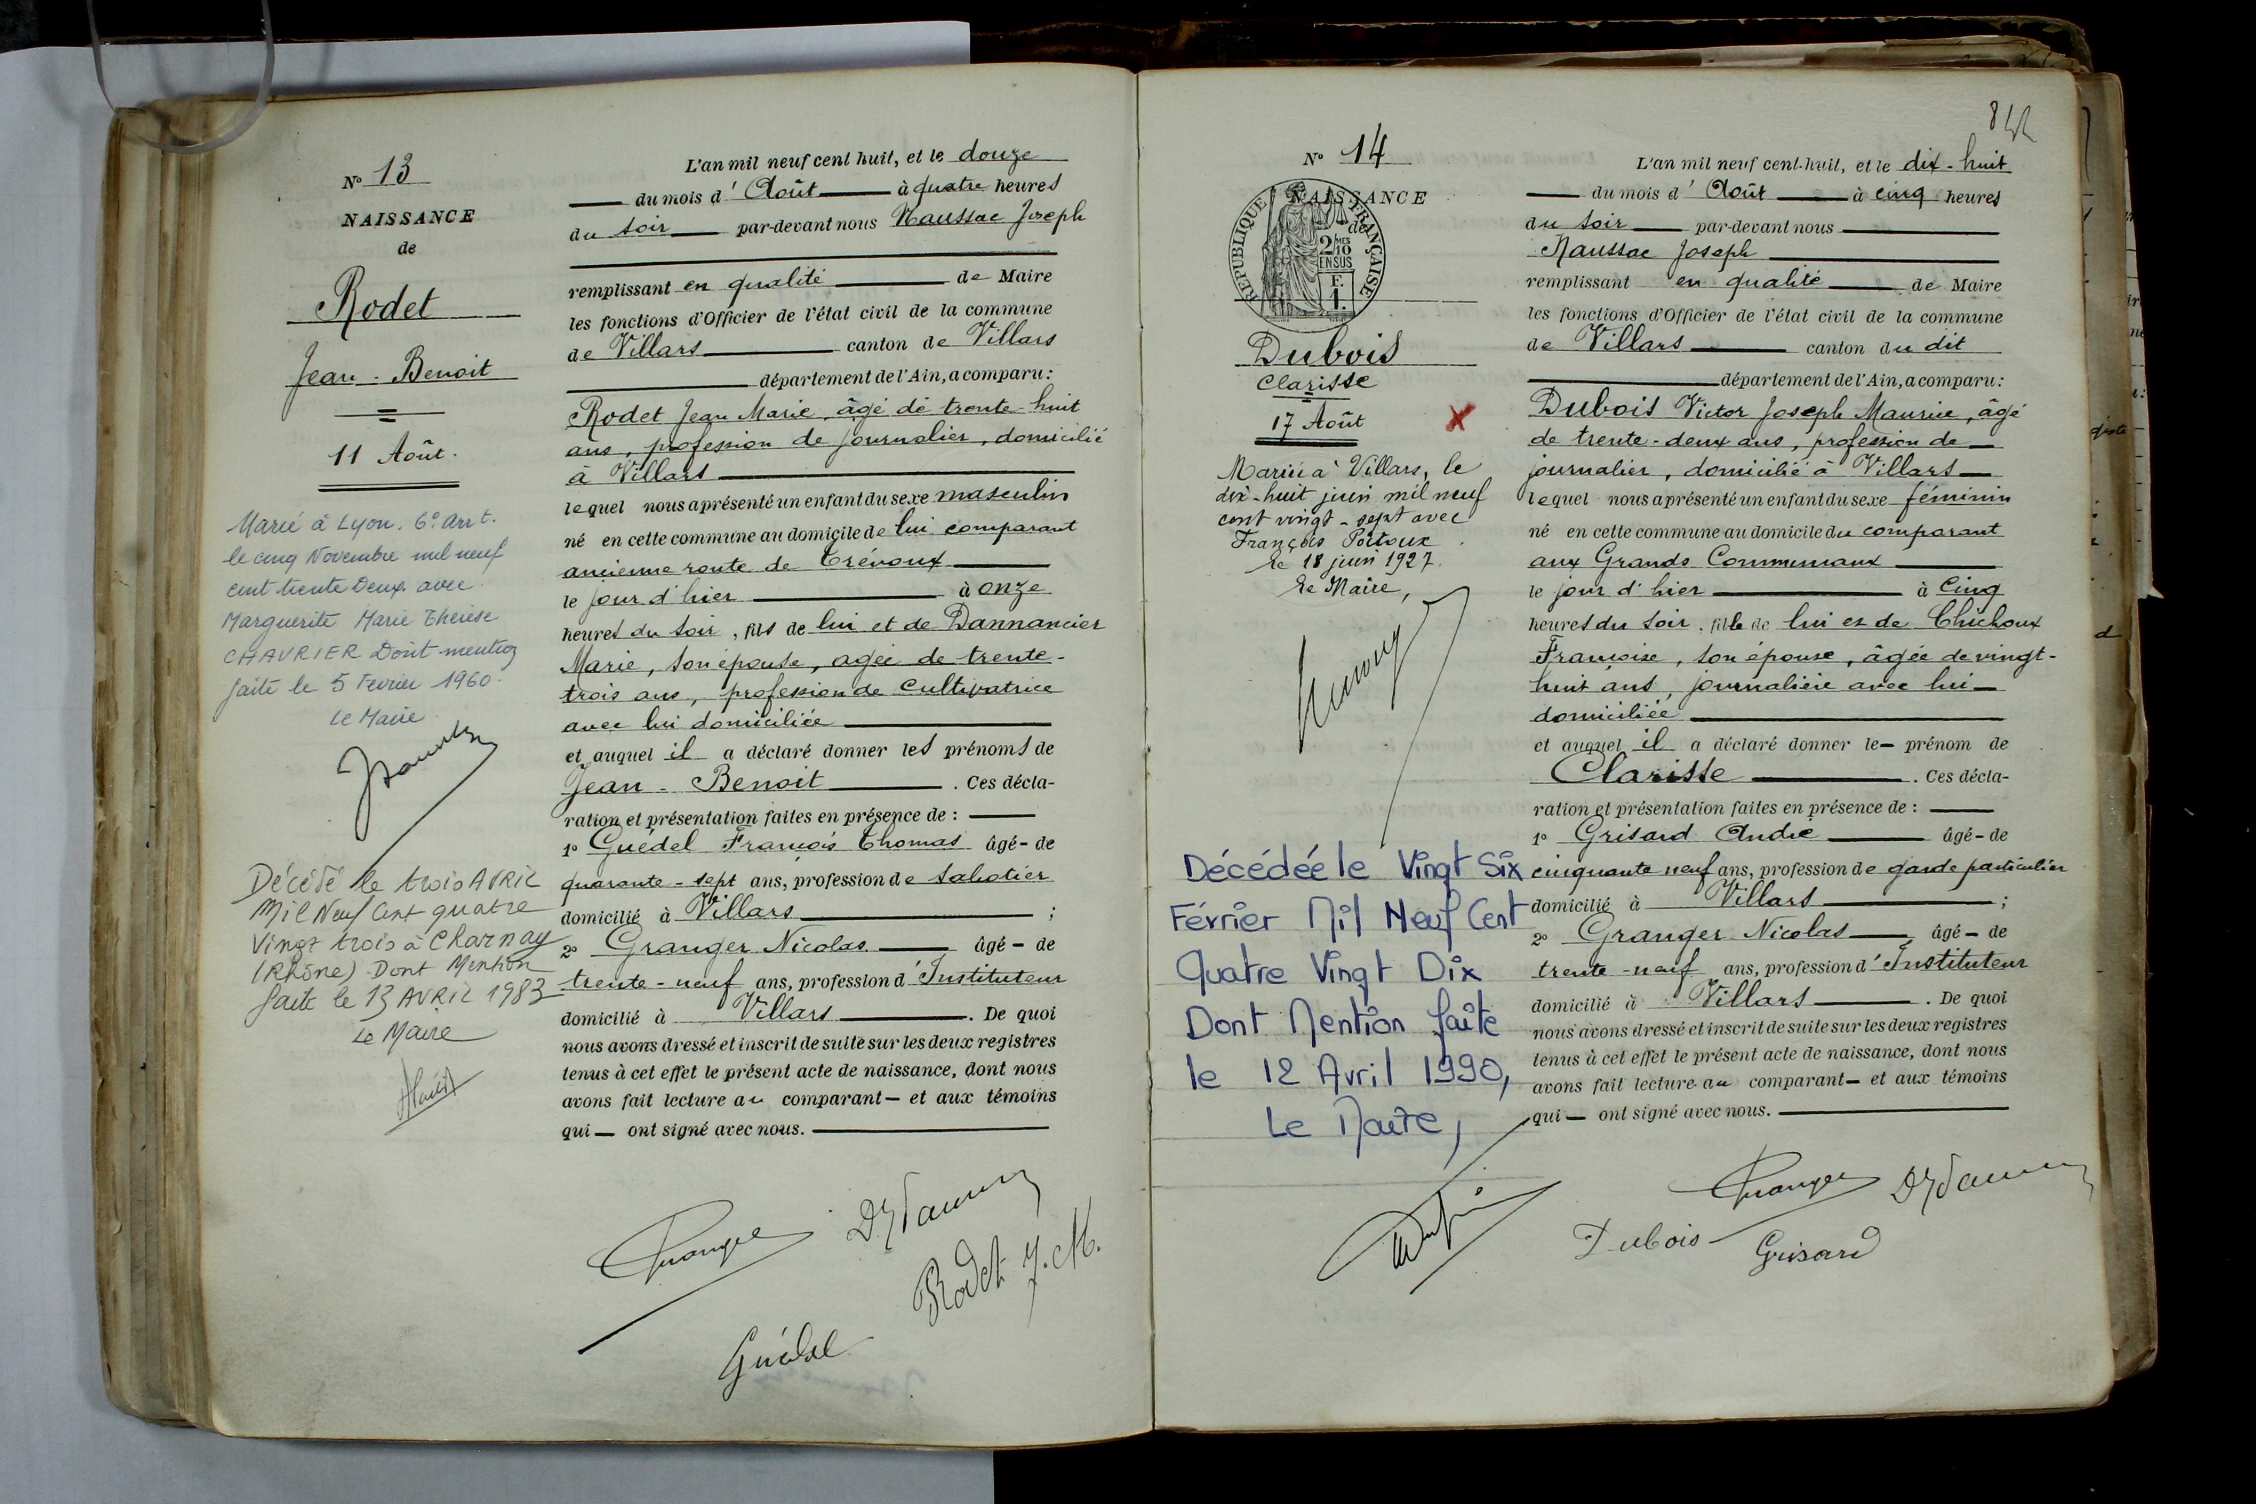 N° 13
NAISSANCE
de
Rodet
Jean - Benoit
11 Août.
Marié à Lyon. 6e Arrt.
le cinq Novembre mil neuf
cent trente Deux avec
Marguerite Marie Thérèse
CHAVRIER Dont mention
faite le 5 Fevrier 1960.
Le Maire
Décédé le trois AVRIL
Mil Neuf Cent quatre
Vingt trois à Charnay
(Rhône) Dont Mention
faite le 13 AVRIL 1983
Le Maire
L'an mil neuf cent huit, et le douze
du mois d'Août à quatre heures
du soir par-devant nous Naussac Joseph
remplissant en qualité de Maire
les fonctions d'Officier de l'état civil de la commune
de Villars canton de Villars
département de l'Ain, a comparu:
Rodet Jean Marie, âgé de trente-huit
ans, profession de journalier, domicilié
à Villars
lequel nous a présenté un enfant du sexe masculin
né en cette commune au domicile de lui comparant
ancienne route de Trévoux
le jour d'hier à onze
heures du soir, fils de lui et de Dannancier
Marie, son épouse, agée de trente-
trois ans, profession de Cultivatrice
avec lui domiciliée
et auquel il a déclaré donner les prénoms de
Jean - Benoit. Ces décla-
ration et présentation faites en présence de :
1° Guédel François Thomas âgé - de
quarante - sept ans, profession de sabotier
domicilié à Villars ;
2° Granger Nicolas âgé - de
trente - neuf ans, profession d'Instituteur
domicilié à Villars. De quoi
nous avons dressé et inscrit de suite sur les deux registres
tenus à cet effet le présent acte de naissance, dont nous
avons fait lecture au comparant - et aux témoins
qui - ont signé avec nous.
Granger
Rodet J. M.
Guédel
842
N° 14
NAISSANCE
de
REPUBLIQUE FRANÇAISE
2/10
EN SUS
F.
1.
Dubois
Clarisse
17 Août
X
Mariée à Villars, le
dix-huit juin mil neuf
cent vingt-sept avec
François Poitoux
le 18 juin 1927.
Le Maire,
Décédée le Vingt Six
Février Mil Neuf Cent
Quatre Vingt Dix
Dont Mention faite
le 12 Avril 1990,
Le Maire,
L'an mil neuf cent-huit, et le dix-huit
du mois d'Août à cinq heures
du soir par-devant nous
Naussac Joseph
remplissant en qualité de Maire
les fonctions d'Officier de l'état civil de la commune
de Villars canton du dit
département de l'Ain, a comparu:
Dubois Victor Joseph Maurice, âgé
de trente-deux ans, profession de
journalier, domicilié à Villars
lequel nous a présenté un enfant du sexe féminin
né en cette commune au domicile du comparant
aux Grands Communaux
le jour d'hier à Cinq
heures du soir. fille de lui et de Chichoux
Françoise, son épouse, âgée de vingt-
huit ans, journalière avec lui
domiciliée
et auquel il a déclaré donner le - prénom de
Clarisse. Ces décla-
ration et présentation faites en présence de :
1° Grisard André âgé - de
cinquante neuf ans, profession de garde particulier
domicilié à Villars ;
2° Granger Nicolas âgé - de
trente - neuf ans, profession d'Instituteur
domicilié à Villars. De quoi
nous avons dressé et inscrit de suite sur les deux registres
tenus à cet effet le présent acte de naissance, dont nous
avons fait lecture au comparant - et aux témoins
qui - ont signé avec nous.
Granger
Dubois
Grisard